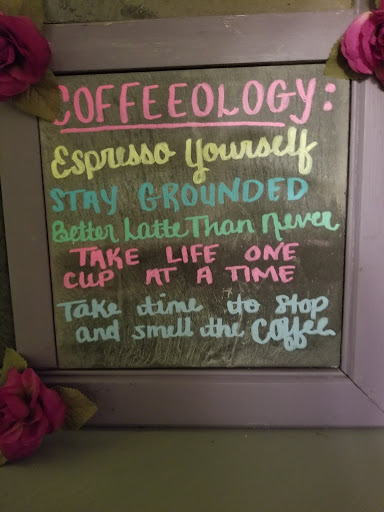 COFFEEOLOGY:
Espresso Yourself
STAY GROUNDED
Better Latte Than Never
TAKE LIFE ONE
CUP AT A TIME
Take time to stop
and smell the Coffee